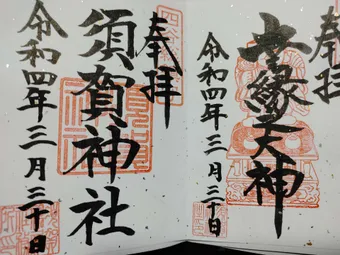 奉拝
縁天神
令和四年三月三十日
奉拝
須賀神社
令和四年三月三十日